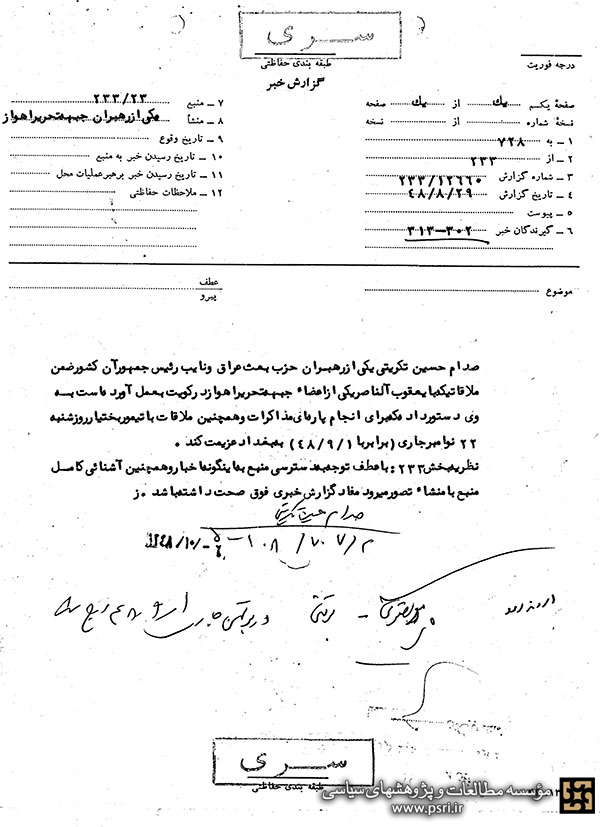 سری
طبقه بندی حفاظتی
گزارش خبر
درجه فوریت
صفحهٔ یکم یک از یک صفحه
نسخهٔ شماره از نسخه
۱ ــ به ۷۲۸
۲ ــ از ۲۳۳
۳ ــ شماره گزارش ۲۳۳/۱۲۶۶۰
۴ ــ تاریخ گزارش ۴۸/۸/۲۹
۵ ــ پیوست
۶ ــ گیرندگان خبر ۳۰۲-۳۱۳
۷ ــ منبع ۲۳۳/۲۳
۸ ــ منشأ یکی از رهبران جبهه تحریر اهواز
۹ ــ تاریخ وقوع
۱۰ ــ تاریخ رسیدن خبر به منبع
۱۱ ــ تاریخ رسیدن خبر برهبرعملیات محل
۱۲ ــ ملاحظات حفاظتی
موضوع
عطف
پیرو
صدام حسین تکریتی یکی از رهبران حزب بعث عراق و نایب رئیس جمهور آن کشور ضمن
ملاقاتیکه با یعقوب آلناصر یکی از اعضاء جبهه تحریر اهواز در کویت بعمل آورده است به
وی دستور داده که برای انجام پاره‌ای مذاکرات و همچنین ملاقات با تیمور بختیار روز شنبه
۲۲ نوامبر جاری (برابر با ۴۸/۹/۱) به بغداد عزیمت کند.
نظریه بخش ۲۳۳: با عطف توجه به دسترسی منبع به اینگونه اخبار و همچنین آشنائی کامل
منبع با منشاء تصور میرود مفاد گزارش خبری فوق صحت داشته باشد. ز
صدام حسین تکریتی
سری
طبقه بندی حفاظتی
مؤسسه مطالعات و پژوهشهای سیاسی
www.psri.ir